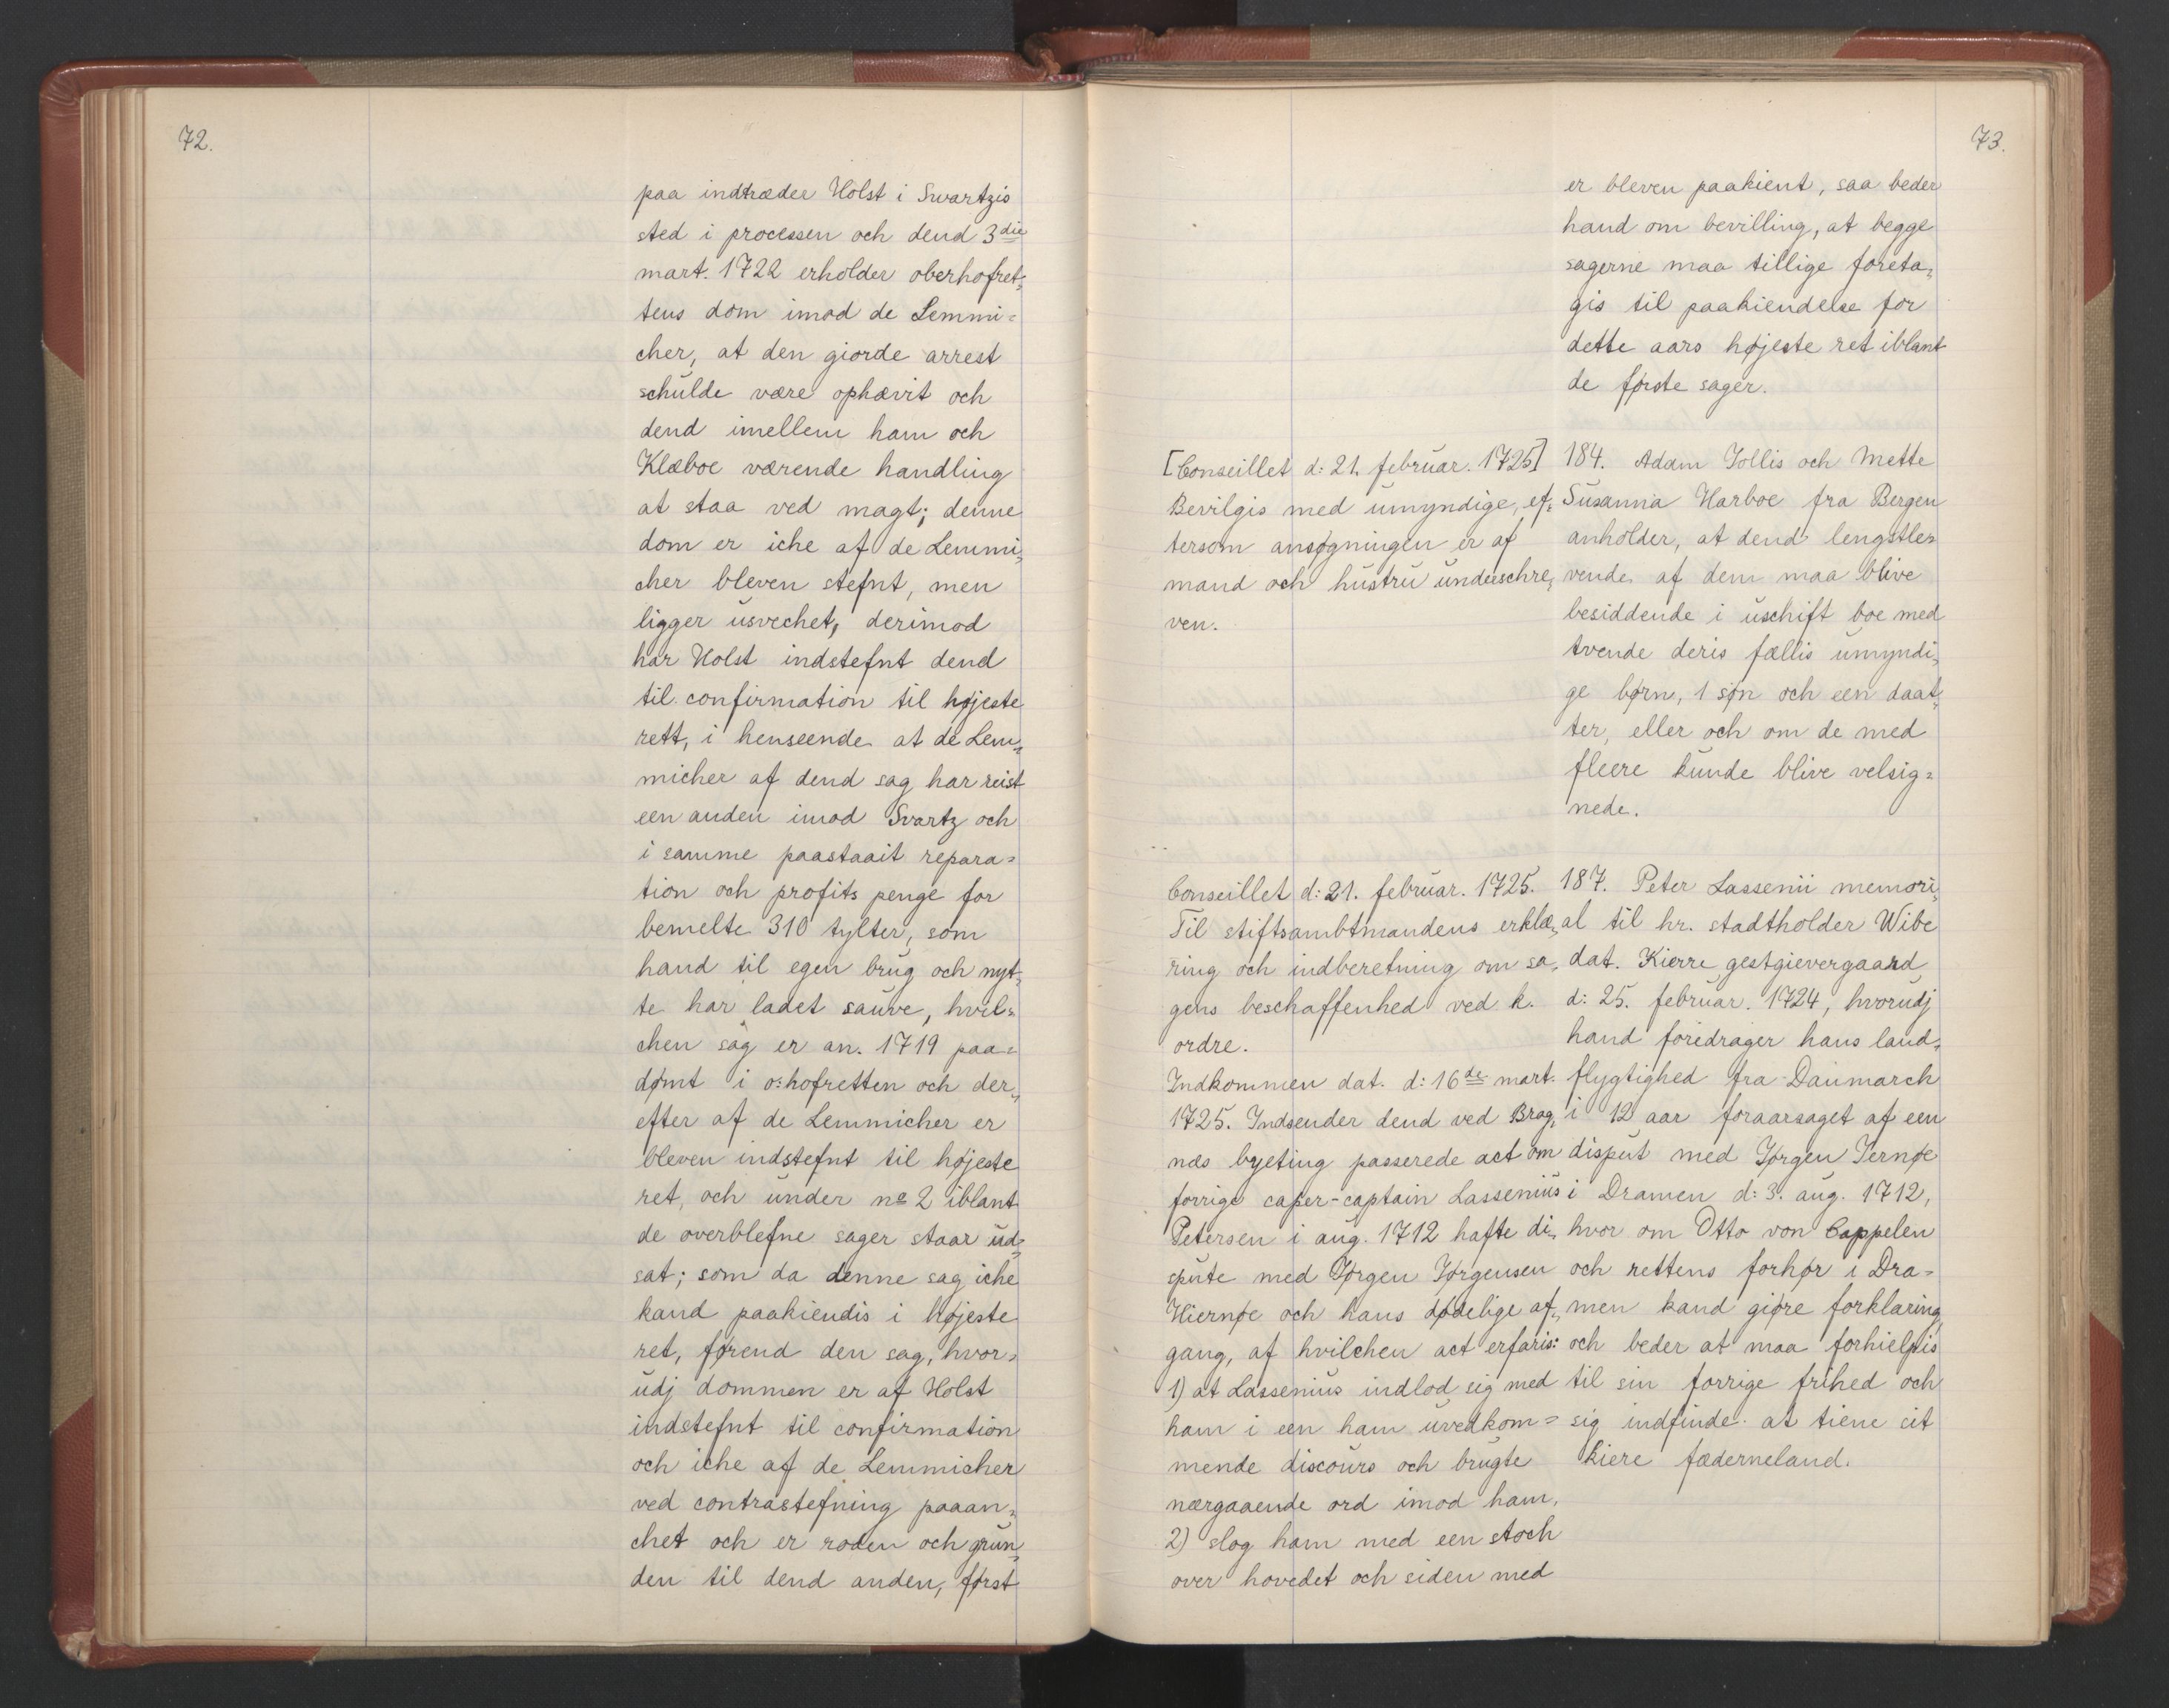 72.
paa indtræder Holst i Swartzis
sted i processen och dend 3die
mart. 1722 erholder oberhofret„
tens dom imod de Lemmi=
cher, at den giorde arrest
schulde være ophævit och
dend imellem ham och
Klæboe værende handling
at staa ved magt; denne
dom er iche af de Lemmi„
cher bleven stefnt, men
ligger usvechet, derimod
har Holst indstefnt dend
til confirmation til højeste
rett, i henseende at de Lem„
micher af dend sag har reist
een anden imod Svartz och
i samme paastaait repara=
tion och profits penge for
bemelte 310 tylter, som
hand til egen brug och nyt„
te har ladet sauve, hvil=
chen sag er an. 1719 paa=
dømt i o:hofretten och der„
efter af de Lemmicher er
bleven indstefnt til højeste
ret, och under no 2 iblant
de overblefne sager staar ud=
sat; som da denne sag iche
kand paakiendis i højeste
ret, førend den sag, hvor=
udj dommen er af Holst
indstefnt til confirmation
och iche af de Lemmicher
ved contrastefning paaan„
chet och er roden och grun„
den til dend anden, først
73.
er bleven paakient, saa beder
hand om bevilling, at begge
sagerne maa tillige foreta„
gis til paakiendelse for
dette aars højeste ret iblant
de første sager.
[Conseillet d: 21. februar. 1725]
Bevilgis med umyndige, ef„
tersom ansøgningen er af
mand och hustru underschre„
ven.
184. Adam Jollis och Mette
Susanna Harboe fra Bergen
anholder, at dend lengstle=
vende af dem maa blive
besiddende i uschift boe med
tvende deris fællis umyndi„
ge børn, 1 søn och een daat„
ter, eller och om de med
fleere kunde blive velsig=
nede.
Conseillet d: 21. februar. 1725.
Til stiftsambtmandens erklæ„
ring och indberetning om sa„
gens beschaffenhed ved k.
ordre.
Indkommen dat. d: 16de mart.
1725. Indsender dend ved Brag„
næs byeting passerede act om
forrige caper-captain Lassenius
Petersen i aug. 1712 hafte di„
spute med Jørgen Jørgensen
Hiernøe och hans dødelige af„
gang, af hvilchen act erfaris:
1) at Lassenius indlod sig med
ham i een ham uvedkom=
mende discours och brugte
nærgaaende ord imod ham,
2) slog ham med een stoch
over hovedet och siden med
187. Peter Lassenii memori„
al til hr. stadtholder Wibe
dat. Kierre gestgievergaard
d: 25. februar. 1724, hvorudj
hand foredrager hans land„
flygtighed fra Danmarch
i 12 aar foraarsaget af een
disput med Jørgen Jernøe
i Dramen d: 3. aug. 1712,
hvor om Otto von Cappelen
och rettens forhør i Dra=
men kand giøre forklaring,
och beder at maa forhielpis
til sin forrige frihed och
sig indfinde at tiene sit
kiere fæderneland.